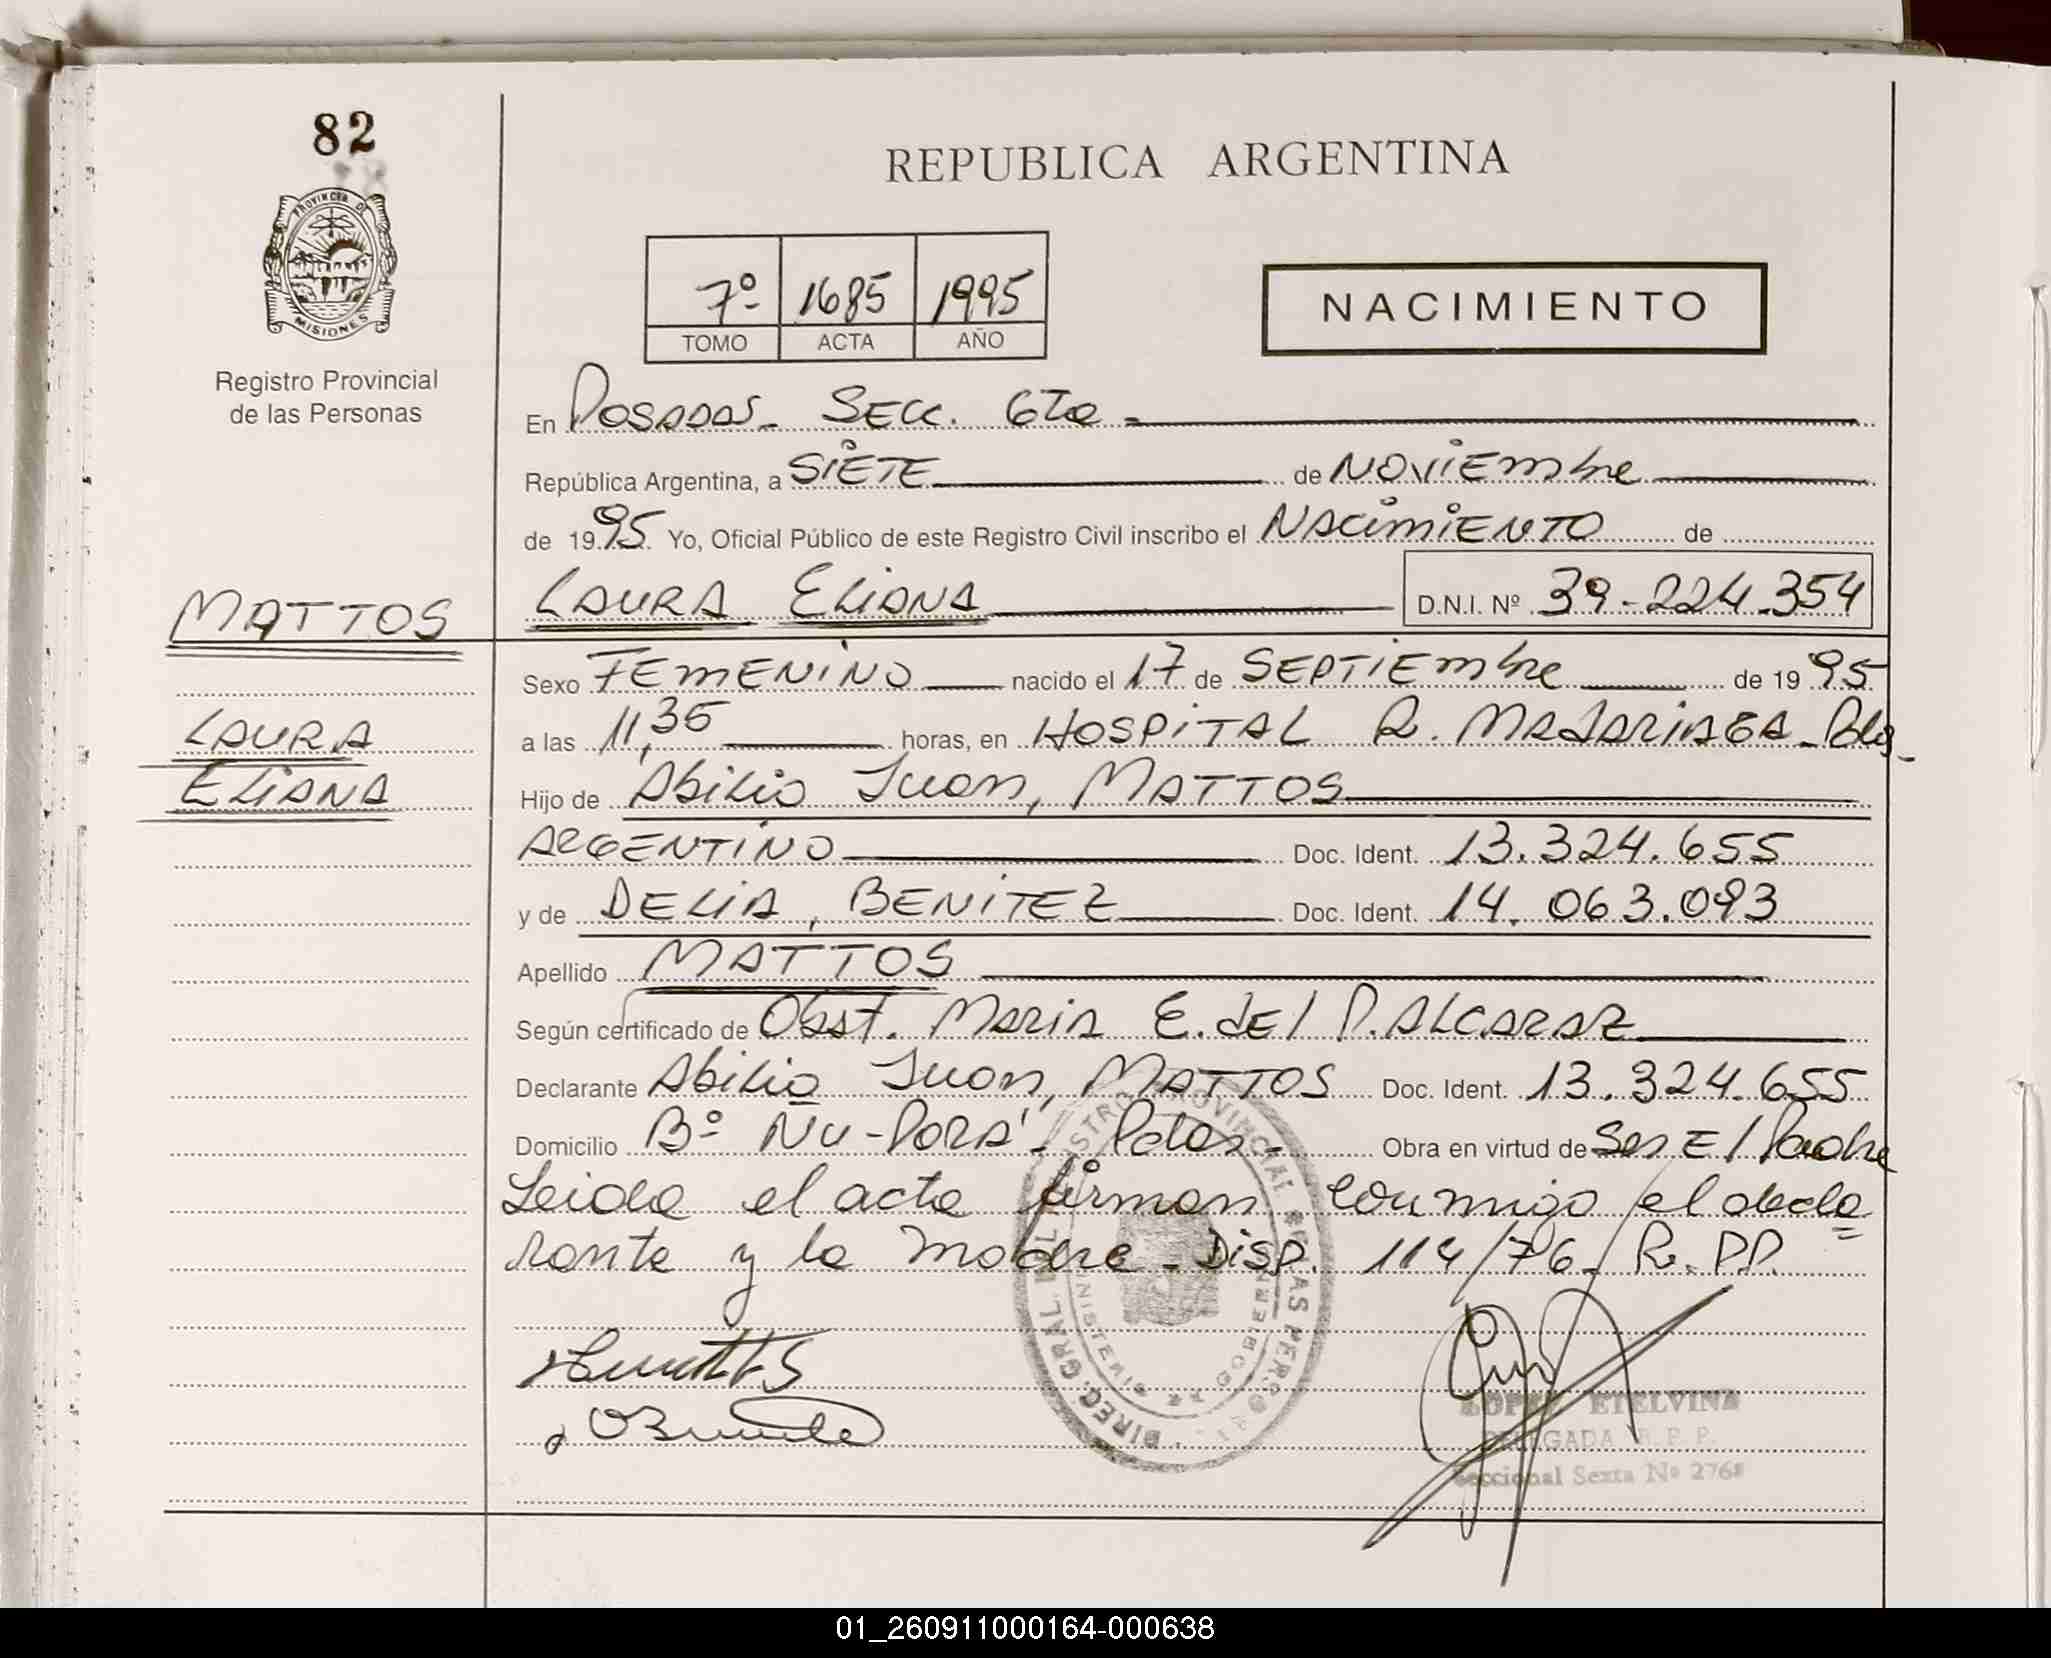 82
PROVINCIA DE
MISIONES
Registro Provincial
de las Personas
REPUBLICA ARGENTINA
7º 1685 1995
TOMO ACTA AÑO
NACIMIENTO
En Posadas - Secc. 6ta -
República Argentina, a SIETE de NOVIEmbre
de 1995 Yo, Oficial Público de este Registro Civil inscribo el NACIMIENTO de
LAURA ELIANA D.N.I. Nº 39-224.354
MATTOS
LAURA
ELIANA
Sexo FEMENINO nacido el 17 de SEPTIEmbre de 1995
a las 11,35 horas, en HOSPITAL R. MADARIAGA -
Hijo de Abilio Juan, MATTOS
ARGENTINO Doc. Ident. 13.324.655
y de DELIA, BENITEZ Doc. Ident. 14.063.093
Apellido MATTOS
Según certificado de Obst. Maria E. del P. ALCARAZ
Declarante Abilio Juan, MATTOS Doc. Ident. 13.324.655
Domicilio Bº Ñu-Porá - Pdas - Obra en virtud de Ser El Padre
Leida el acta firman conmigo el decla=
rante y la madre - Disp. 114/76 - R.PP.
DIREC. GRAL. DEL REGISTRO PROVINCIAL DE LAS PERSONAS
MINISTERIO GOBIERNO
LOPEZ ETELVINA
DELEGADA R.P.P.
Seccional Sexta Nº 2768
01_260911000164-000638